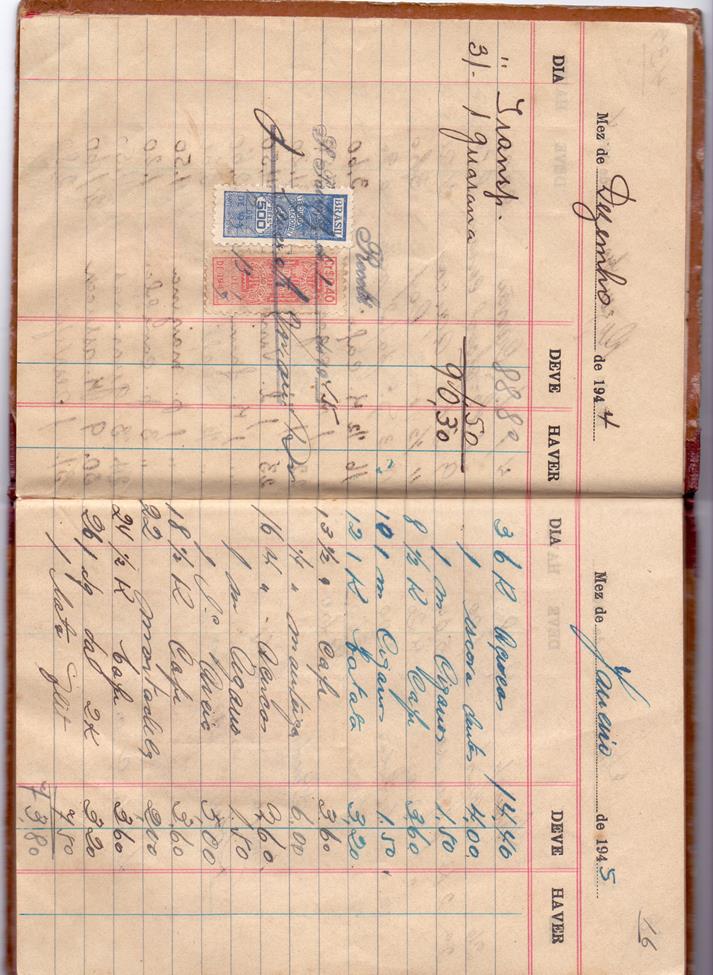 Mez de Dezembro de 1944
DIA DEVE HAVER
" Transp. 88.80
31- 1 guarana 1,50
90,30
BRASIL
500
16
Mez de Janeiro de 1945
DIA DEVE HAVER
3 6 K 14,40
1 escova dentes 4,00
1 m Cigarros 1.50
8 ½ K Cafe 3,60
10 1 m Cigarros 1.50
12 1 K Batata 3,20
13 ½ " Cafe 3,60
¼ " manteiga 6.00
16 4 " 9,60
1 m Cigarro 1,50
5.00
18 ½ K Cafe 3,60
22 mortadela 2,00
24 ½ K Cafe 3,60
26 1 3,20
1 Lata Flit 7,50
73,80